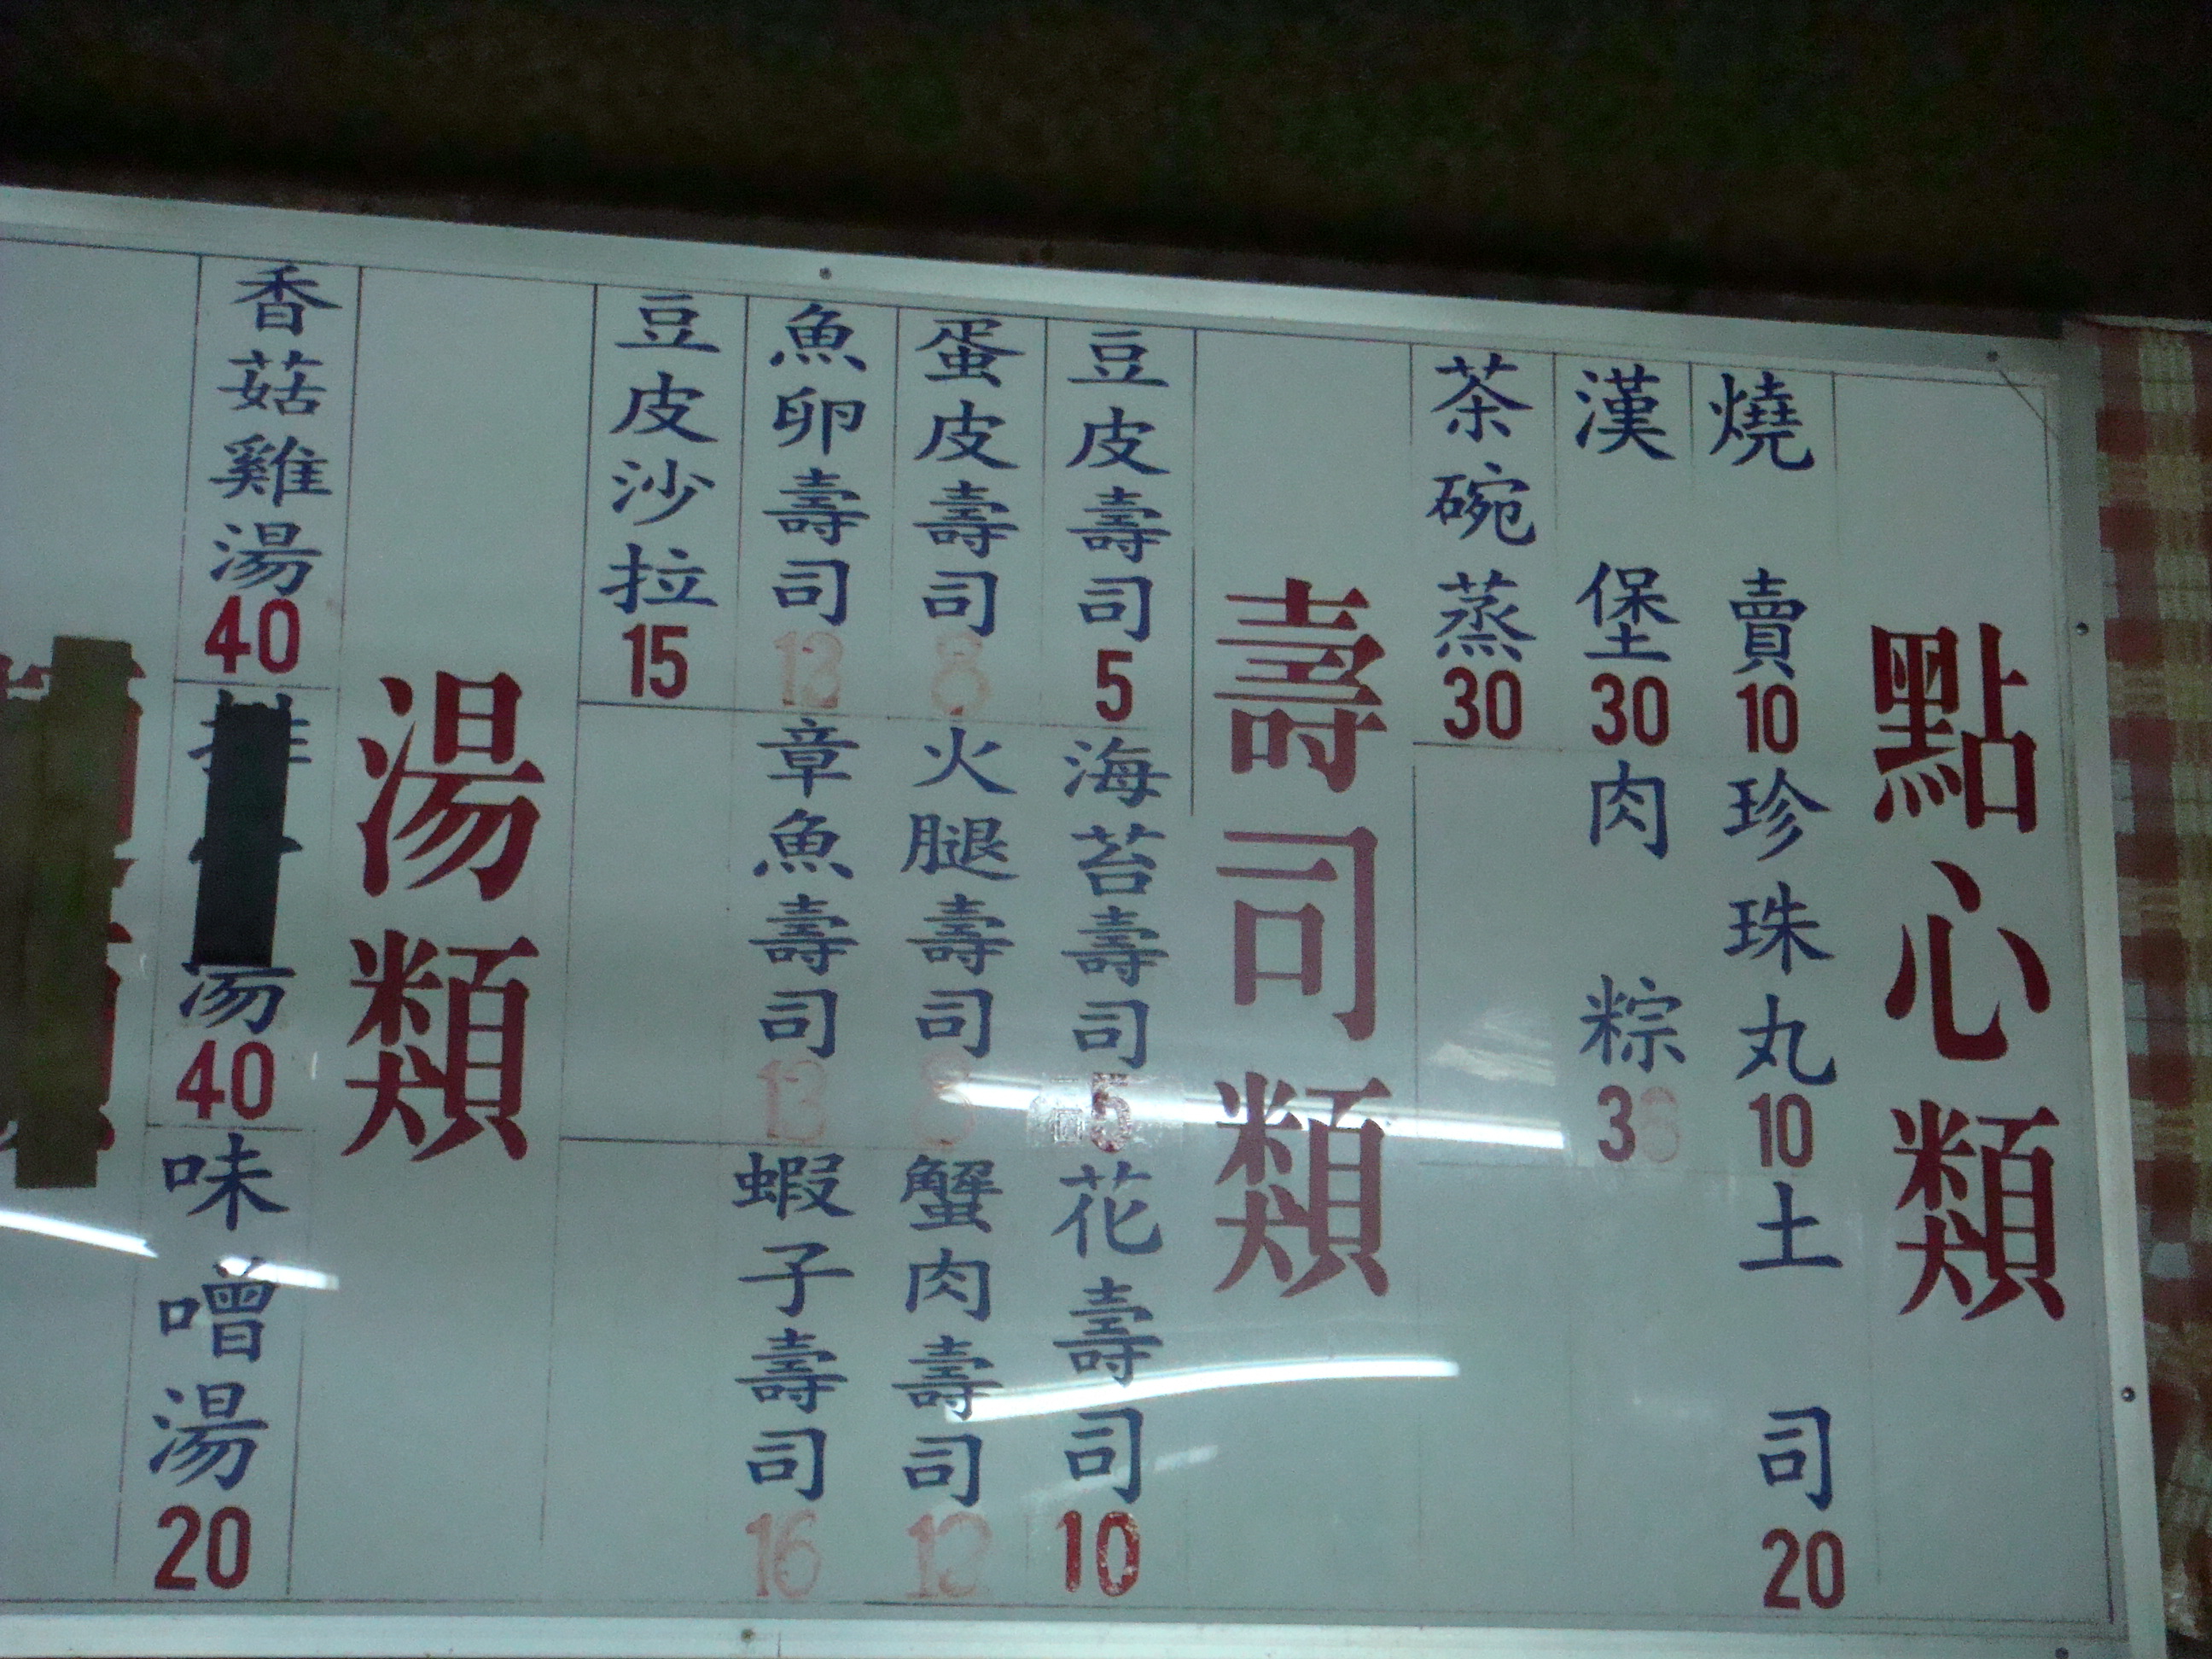 點心類
燒賣10
珍珠丸10
土司20
漢堡30
肉粽3
茶碗蒸30
壽司類
豆皮壽司5
海苔壽司5
花壽司10
蛋皮壽司8
火腿壽司8
蟹肉壽司12
魚卵壽司13
章魚壽司13
蝦子壽司16
豆皮沙拉15
湯類
香菇雞湯40
排湯40
味噌湯20